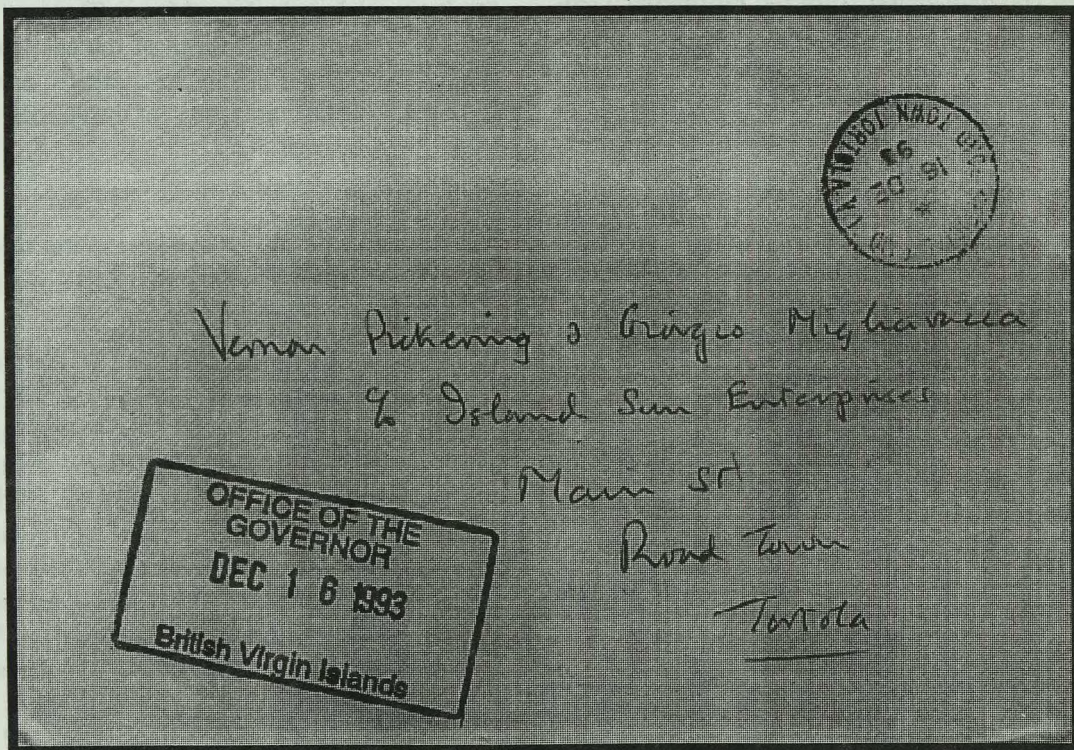 ROAD TOWN TORTOLA
16 DE
93
Vernon Pickering & Giorgio Migliavacca
c/o Island Sun Enterprises
Main St
Road Town
Tortola
OFFICE OF THE
GOVERNOR
DEC 16 1993
British Virgin Islands